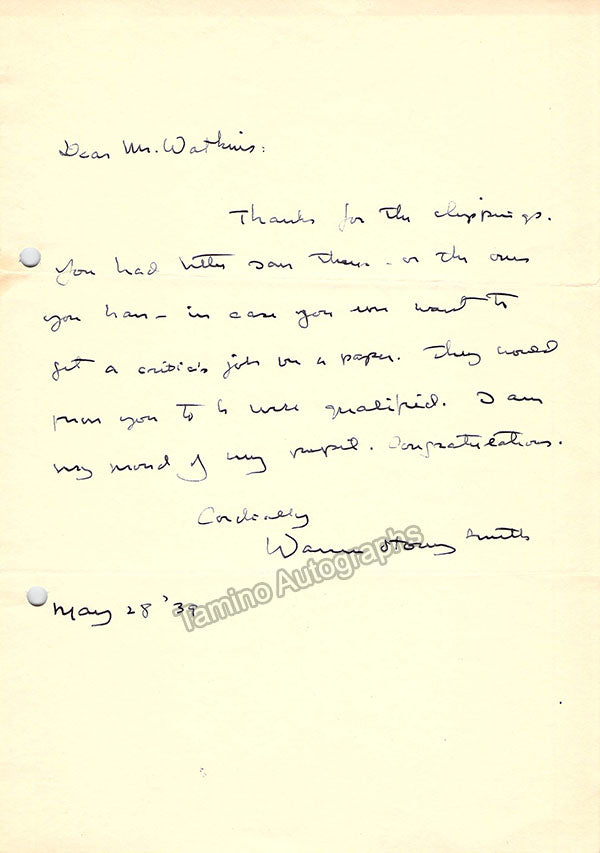 Dear Mr. Watkins:
Thanks for the clippings.
You had better save them - or the ones
you have - in case you ever want to
get a critic's job on a paper. They would
prove you to be well qualified. I am
very proud of my pupil. Congratulations.
Cordially
Warren Storey Smith
May 28 '39
Tamino Autographs